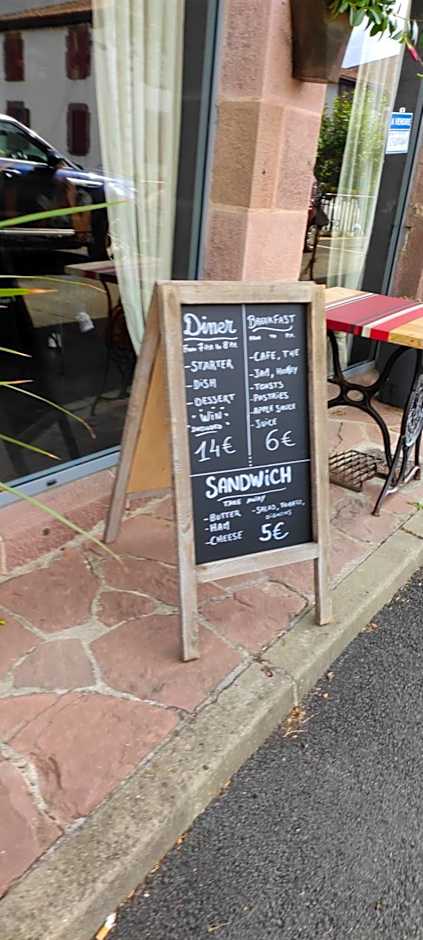 Diner
From 7 PM to 8 PM
-STARTER
-DiSH
-DESSERT
-WiN-
INCLUDED
14€
BREAKFAST
FROM to
-CAFE, THE
-JAM, HONEY
-TOASTS
-PASTRIES
-APPLE SAUCE
-JUICE
6€
SANDWiCH
TAKE AWAY
-BUTTER
-HAM
-CHEESE
-SALAD, TOMATO,
ONIONS
5€
A VENDRE